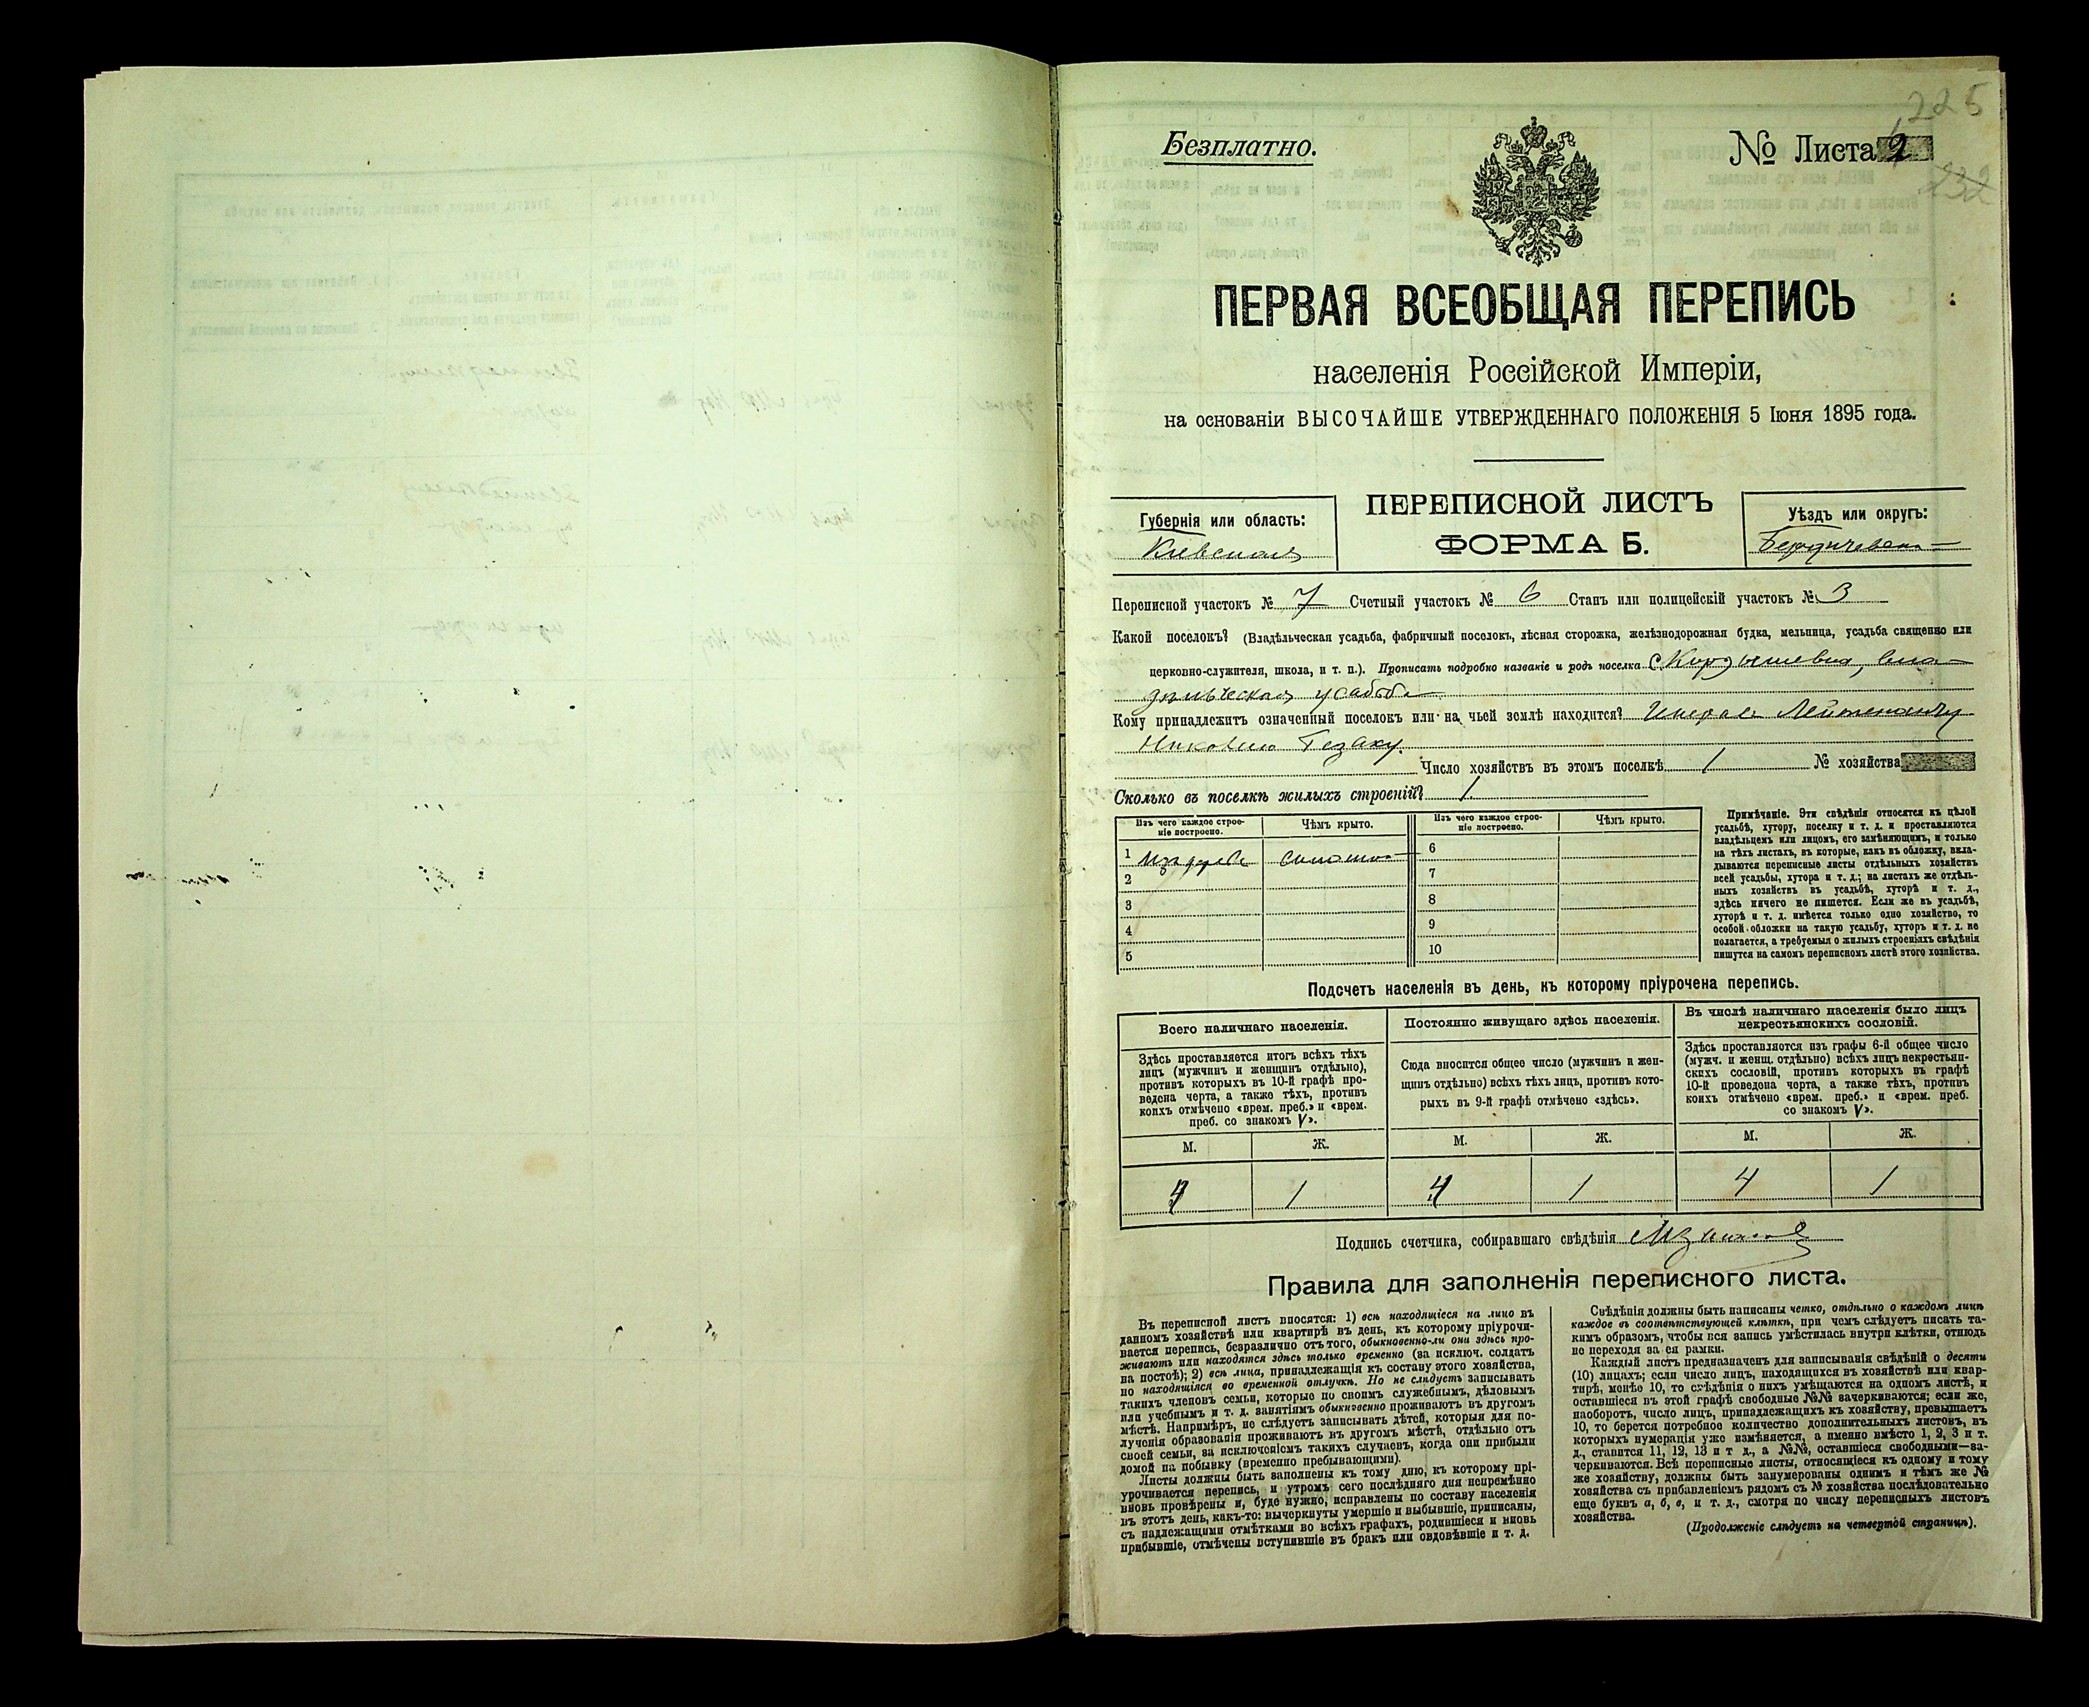 225
Безплатно.
№ Листа 2
232
ПЕРВАЯ ВСЕОБЩАЯ ПЕРЕПИСЬ
населенія Россійской Имперіи,
на основаніи ВЫСОЧАЙШЕ УТВЕРЖДЕННАГО ПОЛОЖЕНІЯ 5 Іюня 1895 года.
ПЕРЕПИСНОЙ ЛИСТЪ
ФОРМА Б.
Губернія или область:
Кіевская
Уѣздъ или округъ:
Бердичевск
Переписной участокъ № 7 Счетный участокъ № 6 Станъ или полицейскій участокъ № 3
Какой поселокъ? (Владѣльческая усадьба, фабричный поселокъ, лѣсная сторожка, желѣзнодорожная будка, мельница, усадьба священно или
церковно-служителя, школа, и т. п.). Прописать подробно названіе и родъ поселка С. Кордышевка, вла
дѣльческая усадьба
Кому принадлежитъ означенный поселокъ или на чьей землѣ находится? Генерал Лейтенанту
Николаю
Число хозяйствъ въ этомъ поселкѣ 1 № хозяйства
Сколько въ поселкѣ жилыхъ строеній? 1
Изъ чего каждое строе-
ніе построено.
Чѣмъ крыто.
Изъ чего каждое строе-
ніе построено.
Чѣмъ крыто.
1 Изъ дерева соломою 6
2 7
3 8
4 9
5 10
Примѣчаніе. Эти свѣдѣнія относятся къ цѣлой
усадьбѣ, хутору, поселку и т. д. и проставляются
владѣльцемъ или лицомъ, его замѣняющимъ, и только
на тѣхъ листахъ, въ которые, какъ въ обложку, вкла-
дываются переписные листы отдѣльныхъ хозяйствъ
всей усадьбы, хутора и т. д.; на листахъ же отдѣль-
ныхъ хозяйствъ въ усадьбѣ, хуторѣ и т. д.,
здѣсь ничего не пишется. Если же въ усадьбѣ,
хуторѣ и т. д. имѣется только одно хозяйство, то
особой обложки на такую усадьбу, хуторъ и т. д. не
полагается, а требуемыя о жилыхъ строеніяхъ свѣдѣнія
пишутся на самомъ переписномъ листѣ этого хозяйства.
Подсчетъ населенія въ день, къ которому пріурочена перепись.
Всего наличнаго населенія.
Здѣсь проставляется итогъ всѣхъ тѣхъ
лицъ (мужчинъ и женщинъ отдѣльно),
противъ которыхъ въ 10-й графѣ про-
ведена черта, а также тѣхъ, противъ
коихъ отмѣчено «врем. преб.» и «врем.
преб. со знакомъ V».
Постоянно живущаго здѣсь населенія.
Сюда вносится общее число (мужчинъ и жен-
щинъ отдѣльно) всѣхъ тѣхъ лицъ, противъ кото-
рыхъ въ 9-й графѣ отмѣчено «здѣсь».
Въ числѣ наличнаго населенія было лицъ
некрестьянскихъ сословій.
Здѣсь проставляется изъ графы 6-й общее число
(мужч. и женщ. отдѣльно) всѣхъ лицъ некрестьян-
скихъ сословій, противъ которыхъ въ графѣ
10-й проведена черта, а также тѣхъ, противъ
коихъ отмѣчено «врем. преб.» и «врем. преб.
со знакомъ V».
М. Ж. М. Ж. М. Ж.
4 1 4 1 4 1
Подпись счетчика, собиравшаго свѣдѣнія
Правила для заполненія переписного листа.
Въ переписной листъ вносятся: 1) всѣ находящіеся на лицо въ
данномъ хозяйствѣ или квартирѣ въ день, къ которому пріурочи-
вается перепись, безразлично отъ того, обыкновенно-ли они здѣсь про-
живаютъ или находятся здѣсь только временно (за исключ. солдатъ
на постоѣ); 2) всѣ лица, принадлежащія къ составу этого хозяйства,
но находящіяся во временной отлучкѣ. Но не слѣдуетъ записывать
такихъ членовъ семьи, которые по своимъ служебнымъ, дѣловымъ
или учебнымъ и т. д. занятіямъ обыкновенно проживаютъ въ другомъ
мѣстѣ. Напримѣръ, не слѣдуетъ записывать дѣтей, которыя для по-
лученія образованія проживаютъ въ другомъ мѣстѣ, отдѣльно отъ
своей семьи, за исключеніемъ такихъ случаевъ, когда они прибыли
домой на побывку (временно пребывающими).
Листы должны быть заполнены къ тому дню, къ которому прі-
урочивается перепись, и утромъ сего послѣдняго дня непремѣнно
вновь провѣрены и, буде нужно, исправлены по составу населенія
въ этотъ день, какъ-то: вычеркнуты умершіе и выбывшіе, приписаны,
съ надлежащими отмѣтками во всѣхъ графахъ, родившіеся и вновь
прибывшіе, отмѣчены вступившіе въ бракъ или овдовѣвшіе и т. д.
Свѣдѣнія должны быть написаны четко, отдѣльно о каждомъ лицѣ
каждое въ соотвѣтствующей клѣткѣ, при чемъ слѣдуетъ писать та-
кимъ образомъ, чтобы вся запись умѣстилась внутри клѣтки, отнюдь
не переходя за ея рамки.
Каждый листъ предназначенъ для записыванія свѣдѣній о десяти
(10) лицахъ; если число лицъ, находящихся въ хозяйствѣ или квар-
тирѣ, менѣе 10, то свѣдѣнія о нихъ умѣщаются на одномъ листѣ, и
оставшіеся въ этой графѣ свободные №№ зачеркиваются; если же,
наоборотъ, число лицъ, принадлежащихъ къ хозяйству, превышаетъ
10, то берется потребное количество дополнительныхъ листовъ, въ
которыхъ нумерація уже измѣняется, а именно вмѣсто 1, 2, 3 и т.
д., ставится 11, 12, 13 и т д., а №№, оставшіеся свободными—за-
черкиваются. Всѣ переписные листы, относящіеся къ одному и тому
же хозяйству, должны быть занумерованы однимъ и тѣмъ же №
хозяйства съ прибавленіемъ рядомъ съ № хозяйства послѣдовательно
еще буквъ а, б, в, и т. д., смотря по числу переписныхъ листовъ
хозяйства.
(Продолженіе слѣдуетъ на четвертой страницѣ).